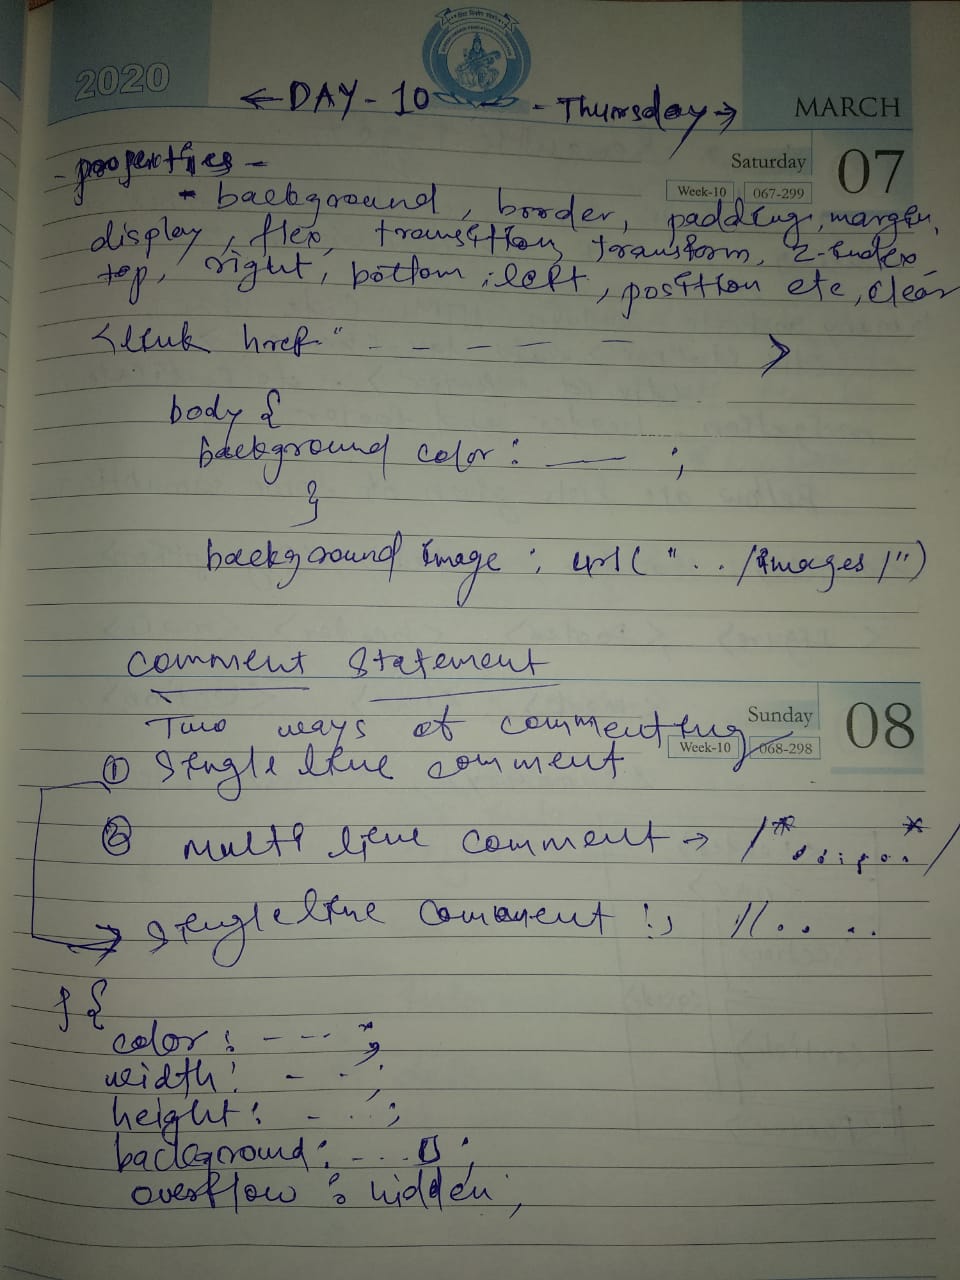 2020
← DAY - 10 - Thursday →
MARCH
Saturday 07
Week-10 067-299
- properties -
background, border, padding, margin,
display, flex, transition, transform, z-index,
top, right, bottom, left, position etc, clear
<link href=" - - - - - >
body {
background color : — ;
}
background image : url( " .. /images /")
comment statement
Two ways of commenting
Sunday 08
Week-10 068-298
① Single line comment
② multi line comment → /* ...... */
→ Single line comment :, //.. ..
{
color : - -- ;
width : - - ;
height : - .. ;
background : - ... ;
overflow : hidden ;